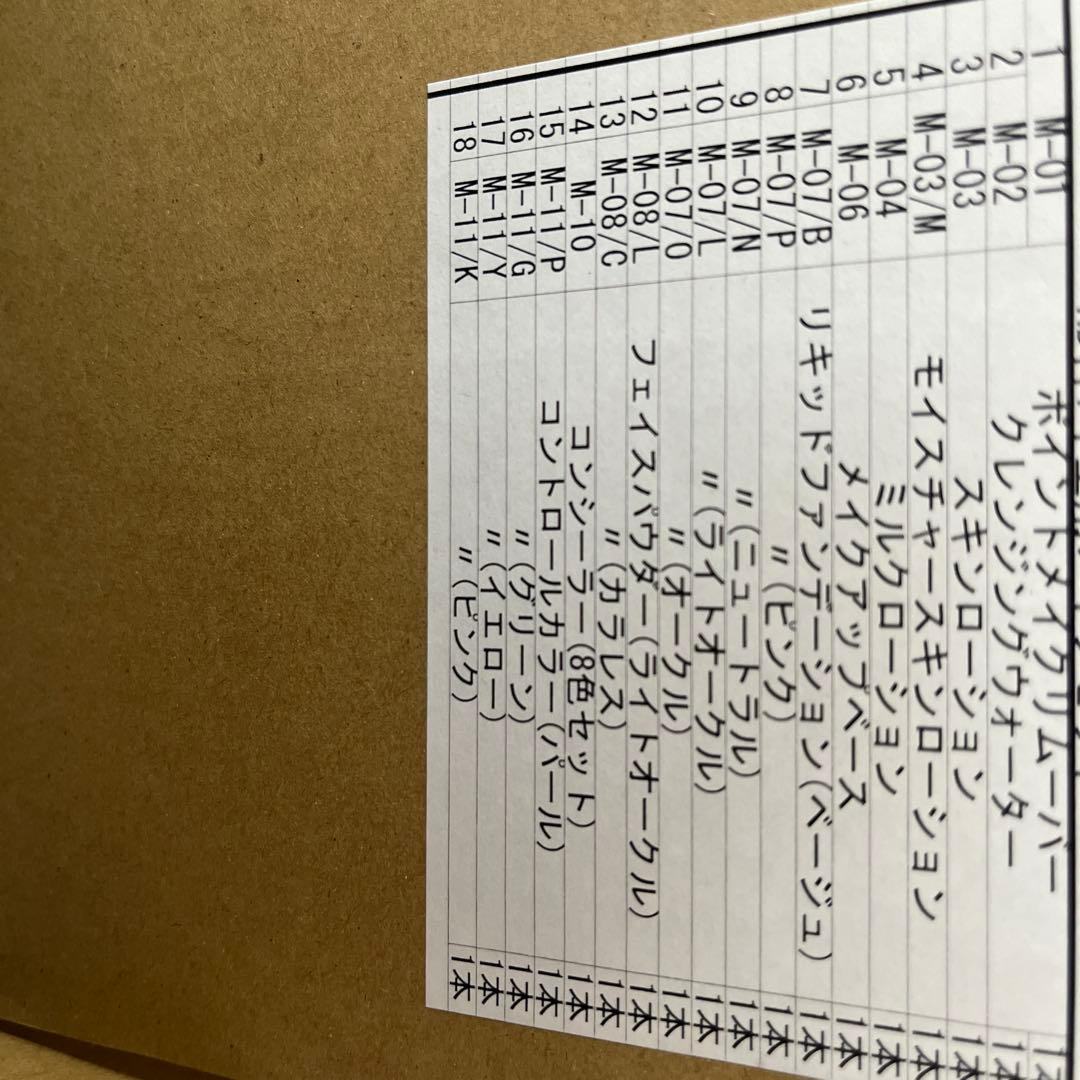 1 M-01 ポイントメイクリムーバー
2 M-02 クレンジングウォーター 1本
3 M-03 スキンローション 1本
4 M-03/M モイスチャースキンローション 1本
5 M-04 ミルクローション 1本
6 M-06 メイクアップベース 1本
7 M-07/B リキッドファンデーション(ベージュ) 1本
8 M-07/P 〃(ピンク) 1本
9 M-07/N 〃(ニュートラル) 1本
10 M-07/L 〃(ライトオークル) 1本
11 M-07/O 〃(オークル) 1本
12 M-08/L フェイスパウダー(ライトオークル) 1本
13 M-08/C 〃(カラレス) 1本
14 M-10 コンシーラー(8色セット) 1本
15 M-11/P コントロールカラー(パール) 1本
16 M-11/G 〃(グリーン) 1本
17 M-11/Y 〃(イエロー) 1本
18 M-11/K 〃(ピンク) 1本